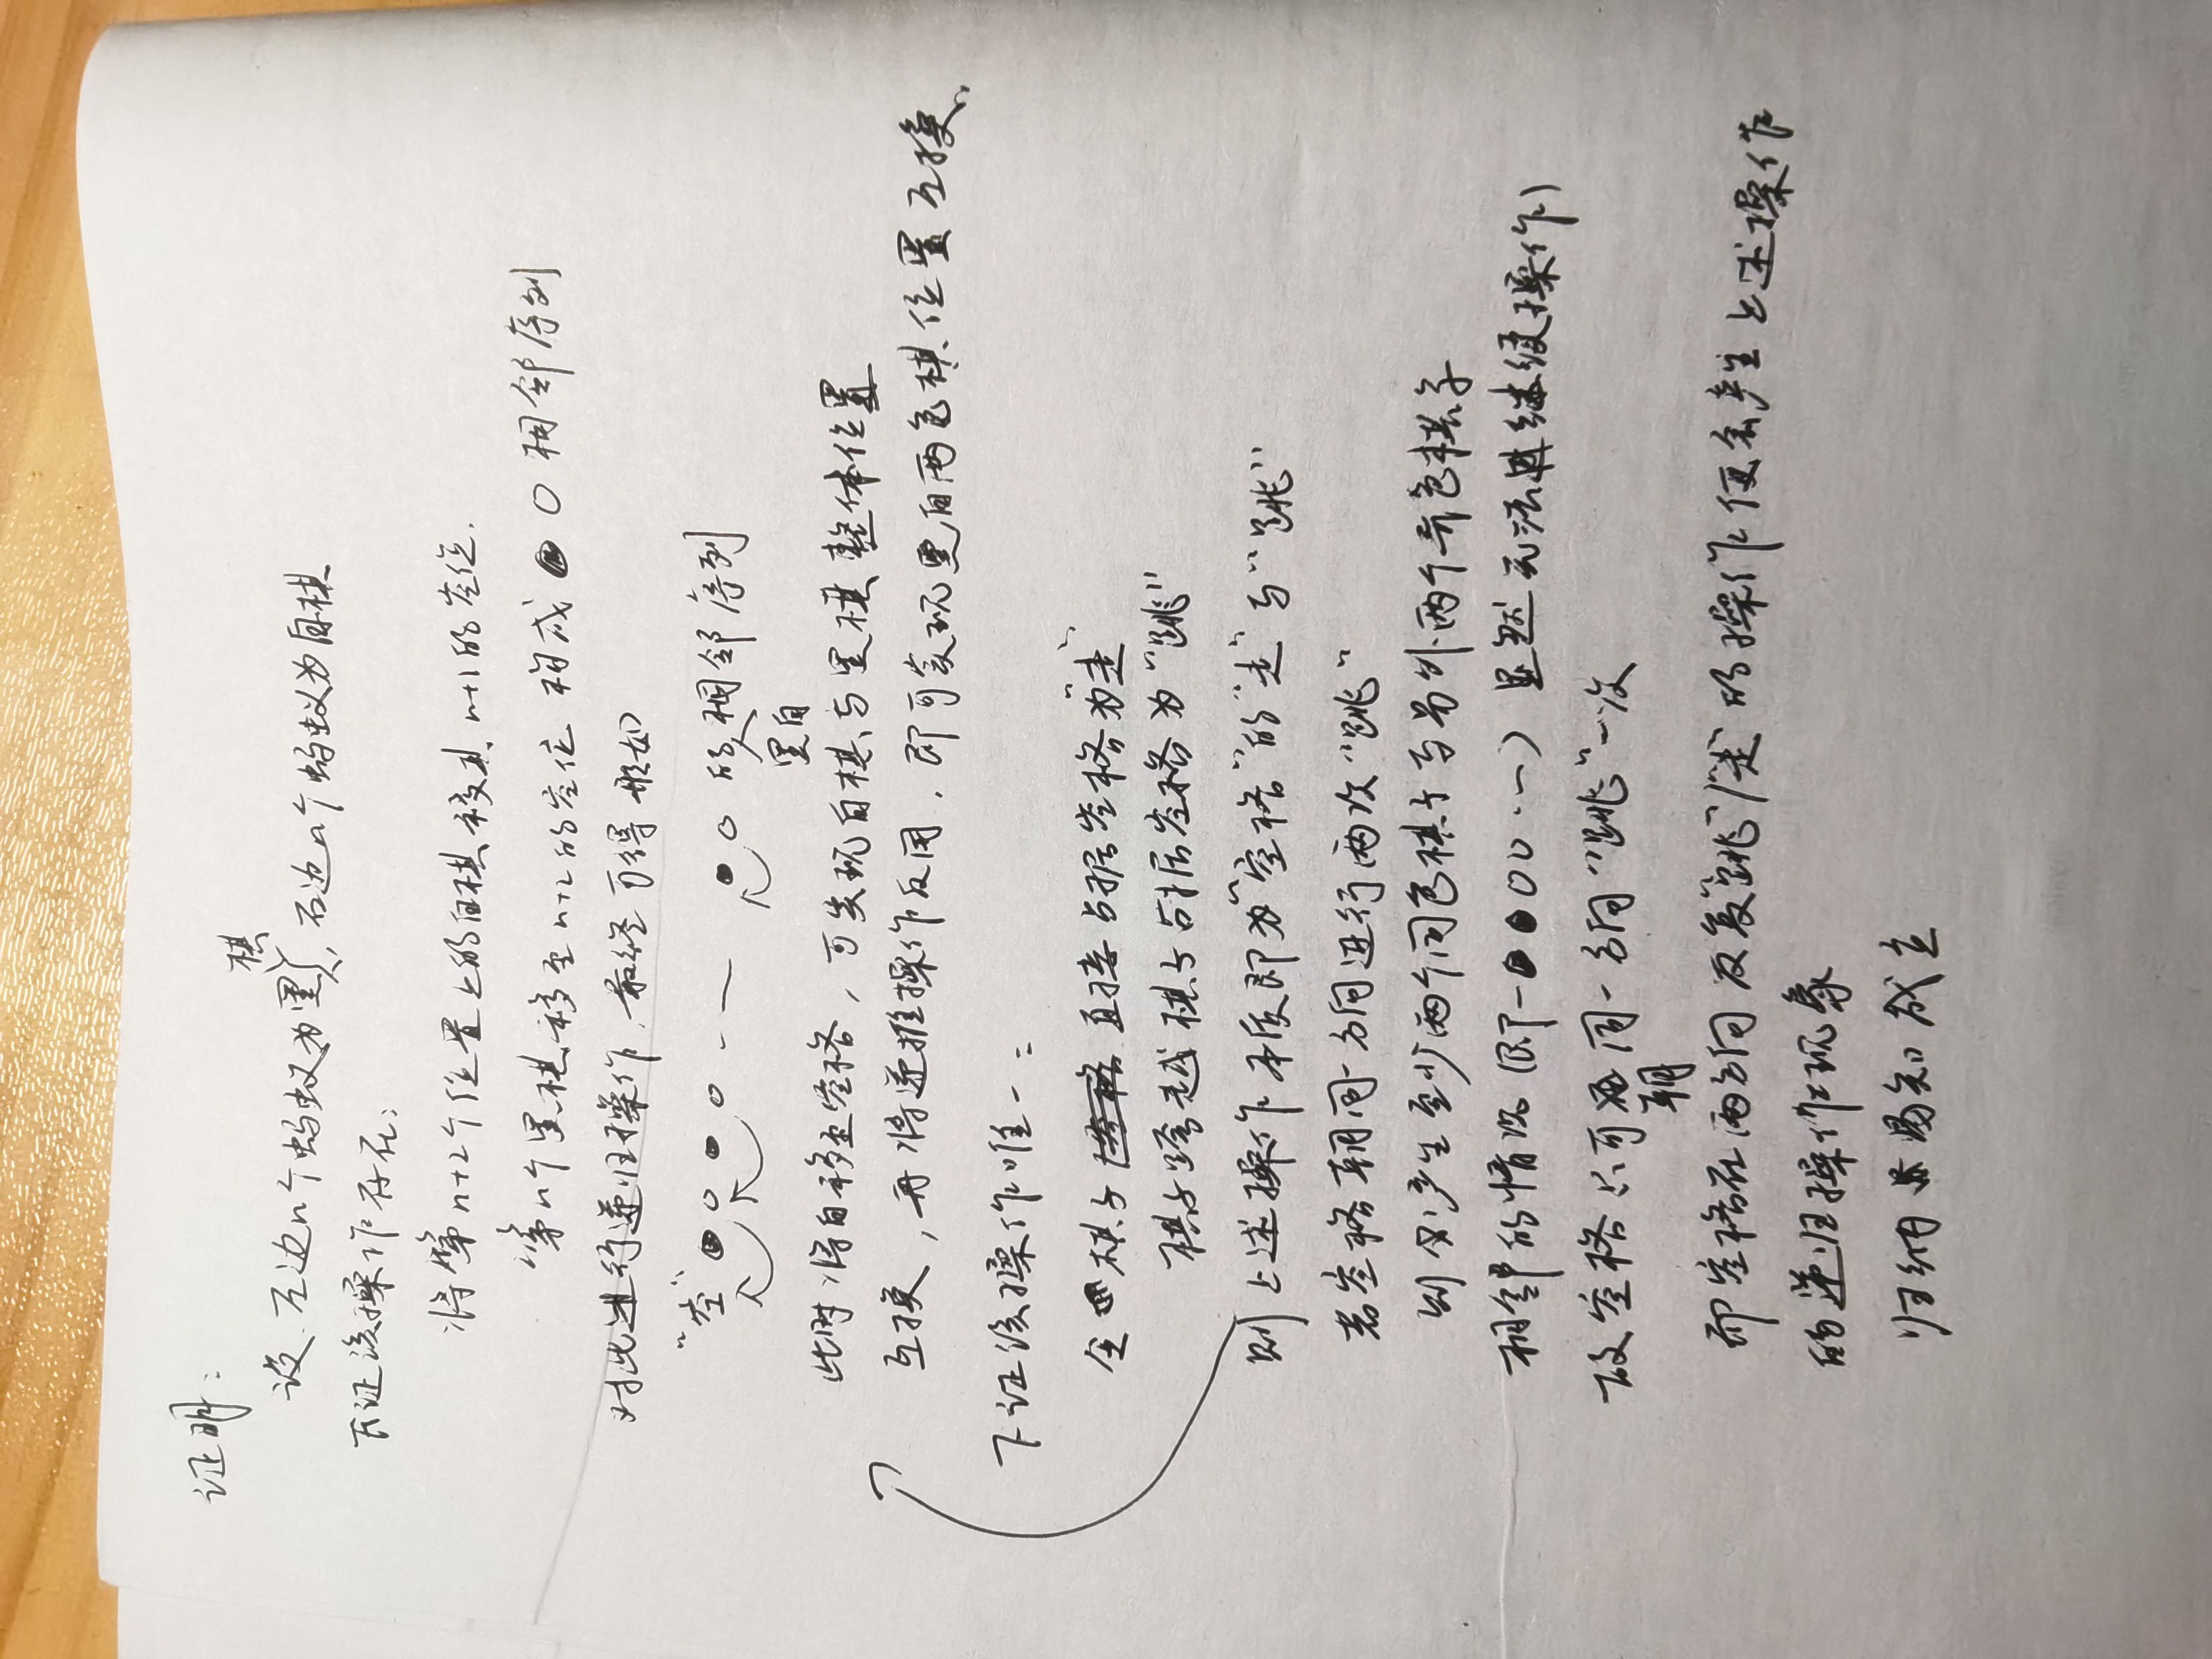 证明：
设左边n个蚂蚁为黑棋，右边n个蚂蚁为白棋
下证该操作存在：
将第n+2个位置上的白棋移其n+1的空位.
第n个黑棋移至n+2的空位 构成●○相邻序列
对此进行递归操作，最终可得形如
“空”●○●○ … ●○ 的黑白相邻序列
此时将白移至空格，可发现白棋与黑棋整体位置
互换，再将递推操作反用，即可实现黑白两色棋位置互换.
下证该操作唯一：
全 棋子 直接占据空格为“走”
棋子跨越棋子占据空格为“跳”
则上述操作本质即为“空格”的“走”与“跳”
若空格朝同一方向进行两次“跳”
则必产生至少两个同色棋子与另外两个异色棋子
相邻的情况（即…●●○○…）显然无法继续操作）
故空格只可朝同一方向“跳”一次
而空格在两方向反复“跳”/“走”的操作便会产生上述操作
的递归操作现象
归纳易知成立